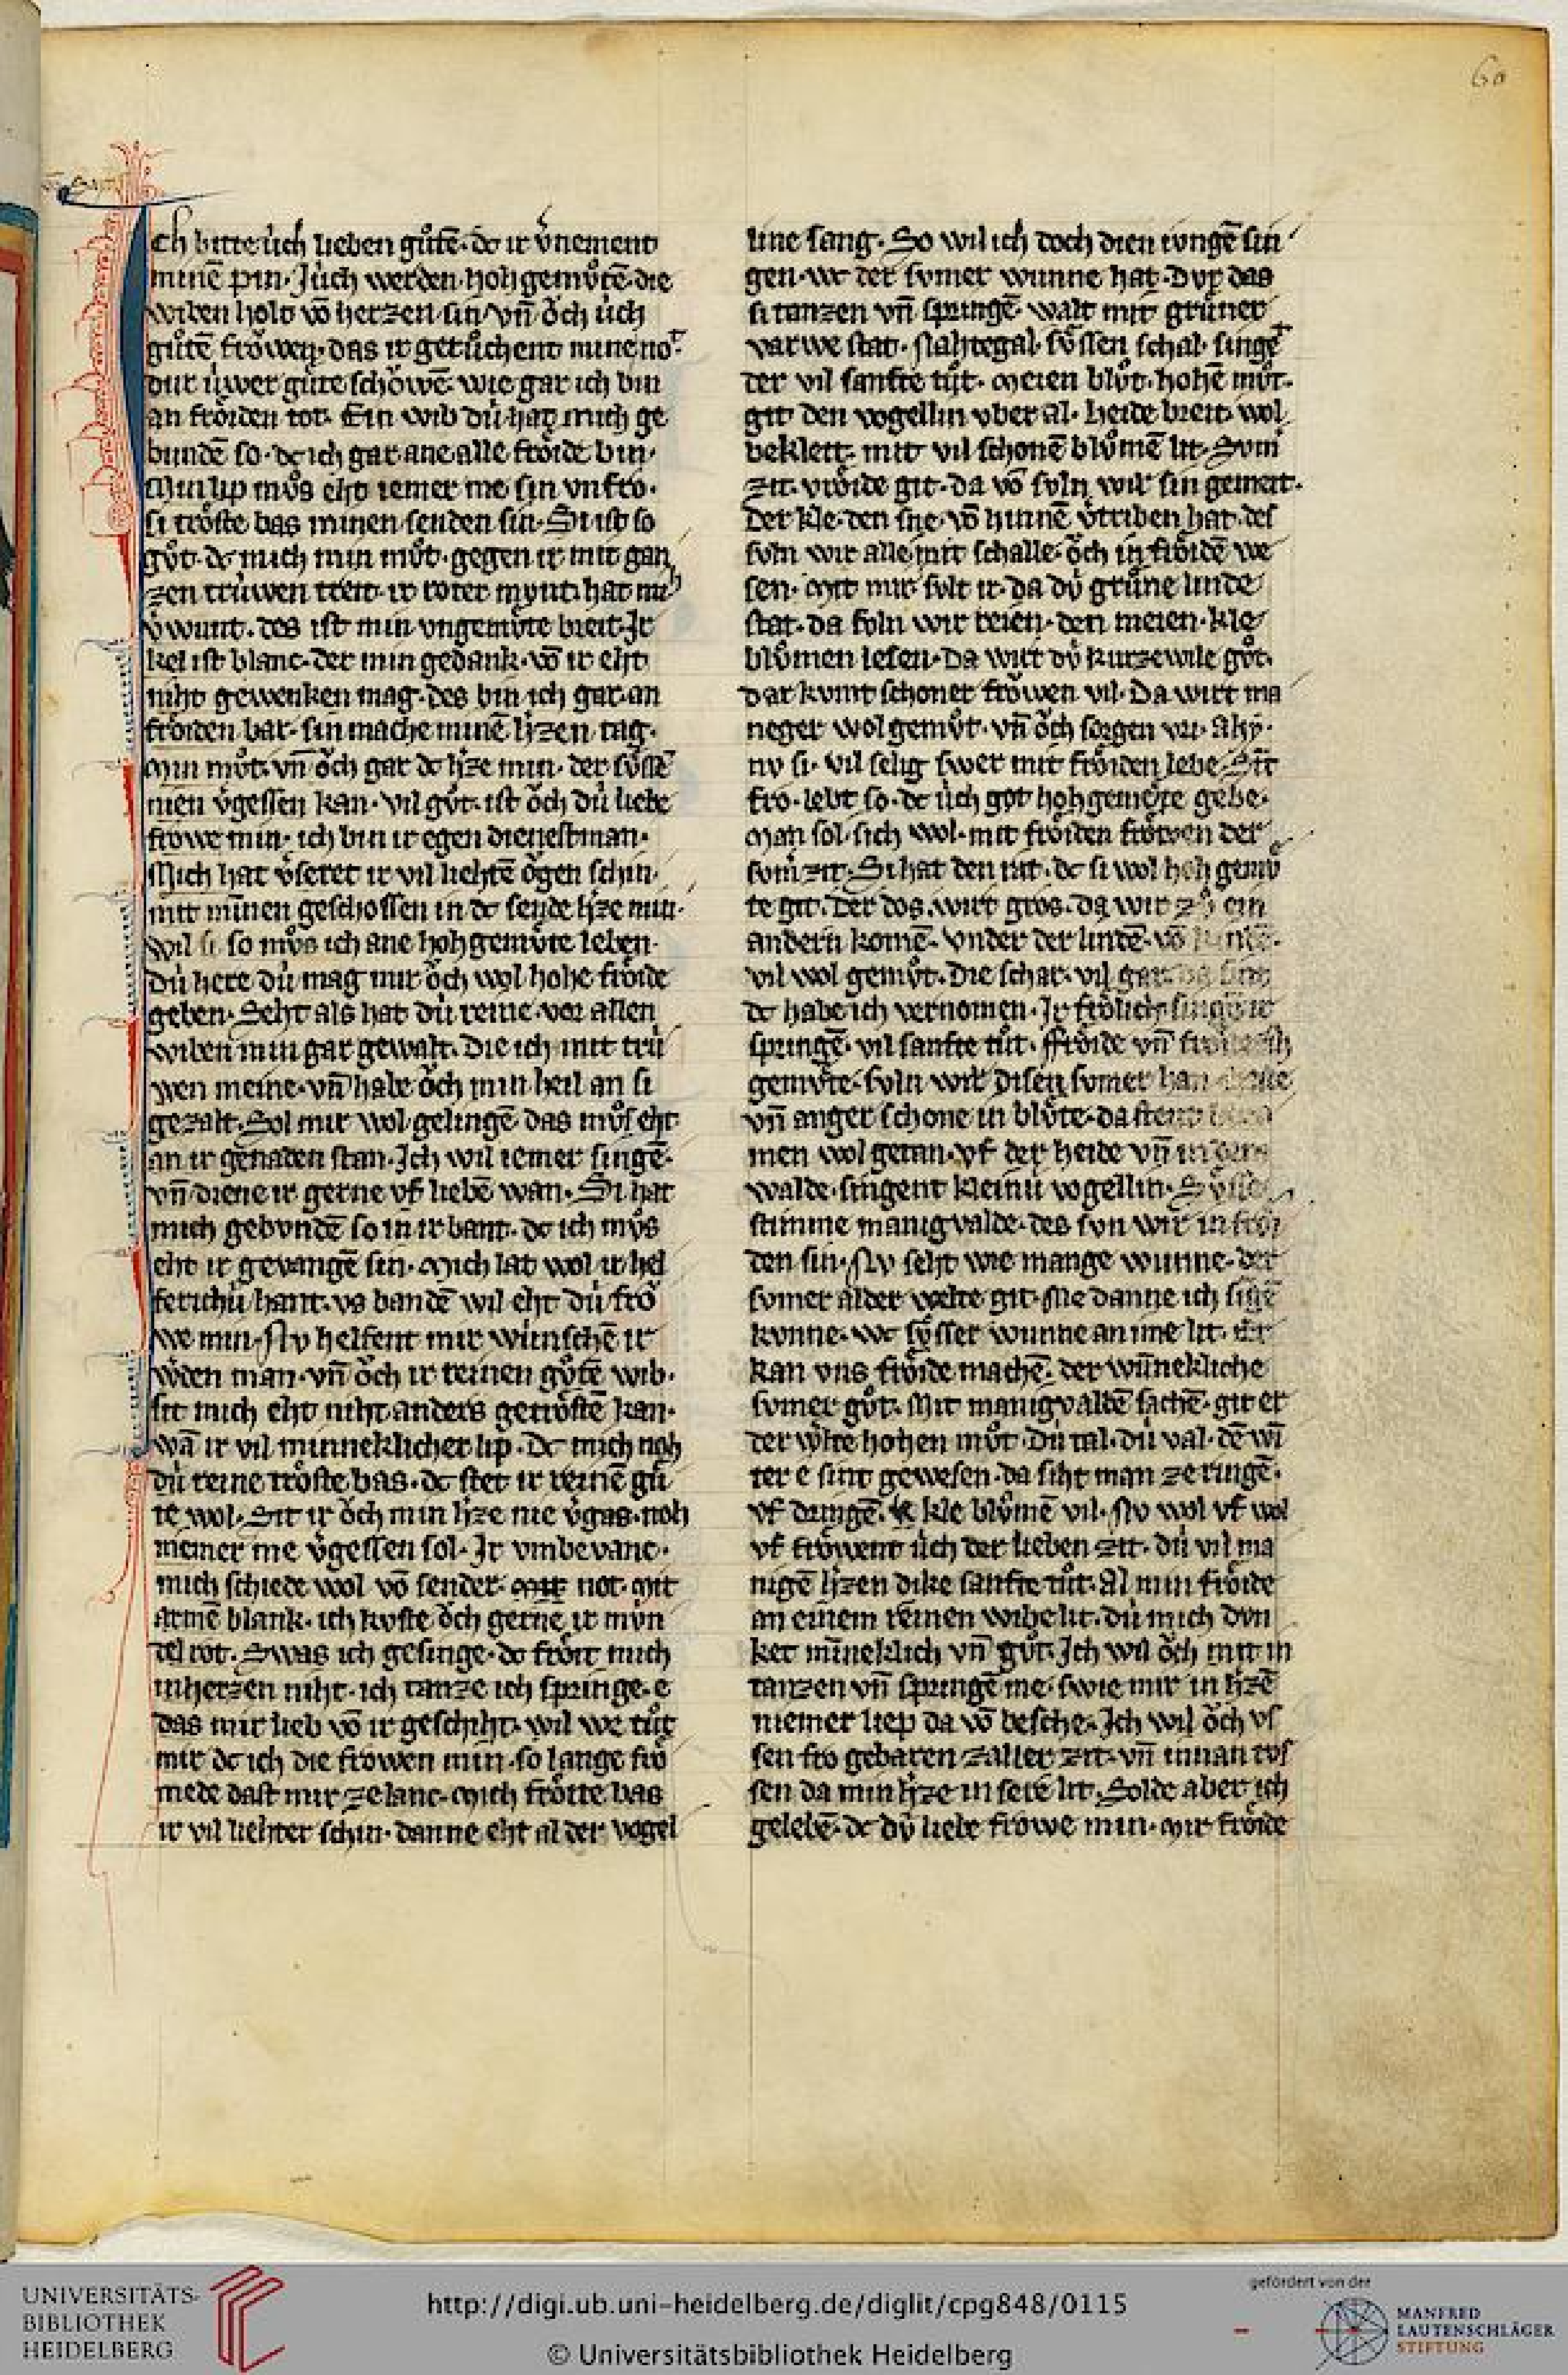 60
Ich bitte v̇ch lieben gůtē· dc ir v̾nement
minē pin· Jv̇ch werden hohgemůtē· die
wiben holt vō herzen sin· vn̄ ŏch v̇ch
gůtē frŏwen· das ir gerůchent mine not·
dur v̇wer gůte schŏwē· wie gar ich bin
an frŏiden tot· Ein wib dv̇ hat mich ge
bundē so· dc ich gar ane alle frŏide bin·
Min lip můs eht iemer me sin vnfro·
si trŏste bas minen senden sin· Si ist so
gůt· dc mich min můt· gegen ir mit gan
zen trv̇wen treit· ir roter mvnt hat mich
v̾wunt· des ist min vngemůte breit· Jr
kel ist blanc· der min gedank· vō ir eht
niht gewenken mag· des bin ich gar an
frŏiden bar· sin mache minē h̾zen tag·
Min můt· vn̄ ŏch gar dc h̾ze min· der sůssē
nien v̾gessen kan· vil gůt· ist ŏch dv̇ liebe
frowe min· ich bin ir egen dienestman·
Mich hat v̾seret ir vil liehtē ŏgen schin·
mit minnen geschossen in dc sende h̾ze min·
wil si so můs ich ane hohgemůte leben·
dv̇ here dv̇ mag mir ŏch wol hohe frŏide
geben· Seht als hat dv̇ reine vor allen
wiben min gar gewalt· Die ich mit trv̇
wen meine· vn̄ habe ŏch min heil an si
gezalt· Sol mir wol gelingē das můs eht
an ir genaden stan· Ich wil iemer singē·
vn̄ diene ir gerne vf liebē wan· Si hat
mich gebvndē so in ir bant· dc ich můs
eht ir gevangē sin· Mich lat wol ir hel
ferichv̇ hant· vs bandē wil eht dv̇ fro
we min· Nv helfent mir wv̇nschē ir
w̾den man· vn̄ ŏch ir reinen gůtē wib·
sit mich eht niht anders getrŏstē kan·
wā ir vil minneklicher lip· Dc mich noh
dv̇ reine trŏste bas· dc stet ir reinē gů
te wol· Sit ir ŏch min h̾ze nie v̾gas· noh
niemer me v̾gessen sol· Jr vmbevanc·
mich schiede wol vō sender not· mit
armē blank· ich kvste ŏch gerne ir mvn
del rot· Swas ich gesinge· dc frŏit mich
in herzen niht· ich tanze ich springe· e
das mir lieb vō ir geschiht· wil we tůt
mir dc ich die frowen min· so lange frŏ
mede dast mir ze lanc· Mich frŏite bas
ir vil liehter schin· danne eht al der vogel
line sang· So wil ich doch dien iungē sin
gen· wc der svmer wunne hat· Dvr das
si tanzen vn̄ springē· walt mit grůner
varwe stat· Nahtegal· sůssen schal· singēt
der vil sanfte tůt· Meien blůt· hohē můt·
git den vogellin vber al· heide breit· wol
bekleit· mit vil schonē blůmē lit· Svm̄
zit· vrŏide git· da vō svln wir sin gemeit·
Der kle· den sne· vō hinnē v̾triben hat· des
svln wir alle mit schalle· ŏch in frŏidē we
sen· Mit mir svlt ir· da dv̇ grůne linde
stat· da svln wir reien· den meien· kle
blůmen lesen· Da wirt dv̇ kurzewile gůt·
dar kvmt schoner frowen vil· Da wirt ma
neger wolgemůt· vn̄ ŏch sorgen vri· Ahy·
nv si· vil selig swer mit frŏiden lebe· Sit
fro· lebt so· dc v̇ch got hohgemůte gebe·
Man sol sich wol· mit frŏiden frŏwen der
svm̄ zit· Si hat den rat· dc si wol hoh gemů
te git· Der dos· wirt gros· da wir zů ein
andern komē· Vnder der lindē· vō
vil wol gemůt· Die schar· vil gar
dc habe ich vernomen· Jr frŏlich singē ir
springē· vil sanfte tůt· Frŏide vn̄
gemůte· svln wir disen svmer han·
vn̄ anger schone in blůte· da stent
men wol getan· vf der heide vn̄ in dem
walde· singent kleinv̇ vogellin· Sůsse
stimme manigvalde· des svn wir in frŏi
den sin· Nv seht wie mange wunne· der
svmer al der welte git· Nie danne ich sīgē
kvnne· wc sůsser wunne an ime lit· er
kan vns frŏide machē· der wunnekliche
svmer gůt· Mit manigvaldē sachē· git er
der w̾lte hohen můt· Dv̇ tal· dv̇ val· dē wī
ter e sint gewesen· da siht man ze ringē·
vf dringē· kle blůmē vil· Nv wol vf wol
vf frŏwent v̇ch der lieben zit· dv̇ vil ma
nigē h̾zen dike sanfte tůt· Al min frŏide
an einem reinen wibe lit· dv̇ mich dvn
ket mīneklich vn̄ gůt· Ich wil ŏch mit in
tanzen vn̄ springē me· swie mir in h̾zē
niemer liep da vō besche· Ich wil ŏch vs
sen fro gebaren zaller zit· vn̄ innan tvs
sen da min h̾ze in sere lit· Solde aber ich
gelebē· dc dv̇ liebe frowe min· mir frŏide
UNIVERSITÄTS-
BIBLIOTHEK
HEIDELBERG
http://digi.ub.uni-heidelberg.de/diglit/cpg848/0115
© Universitätsbibliothek Heidelberg
gefördert von der
MANFRED
LAUTENSCHLÄGER
STIFTUNG